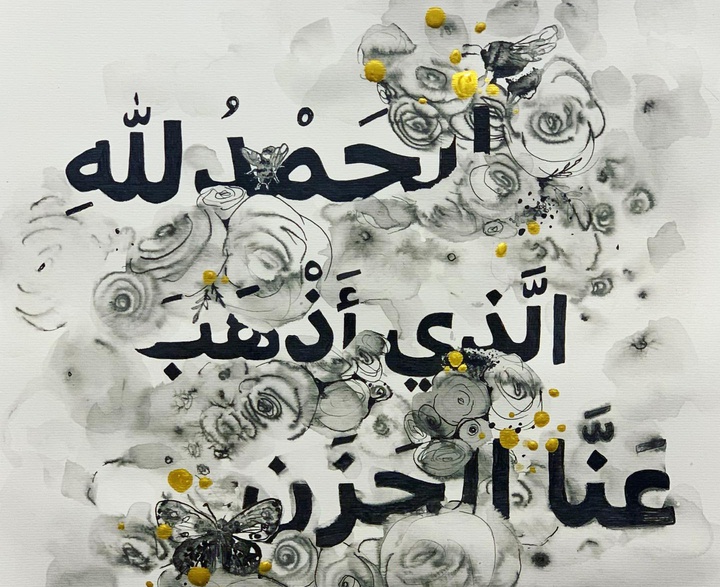 الحَمْدُ لِلّٰهِ
الَّذي أَذْهَبَ
عَنَّا الحَزَن